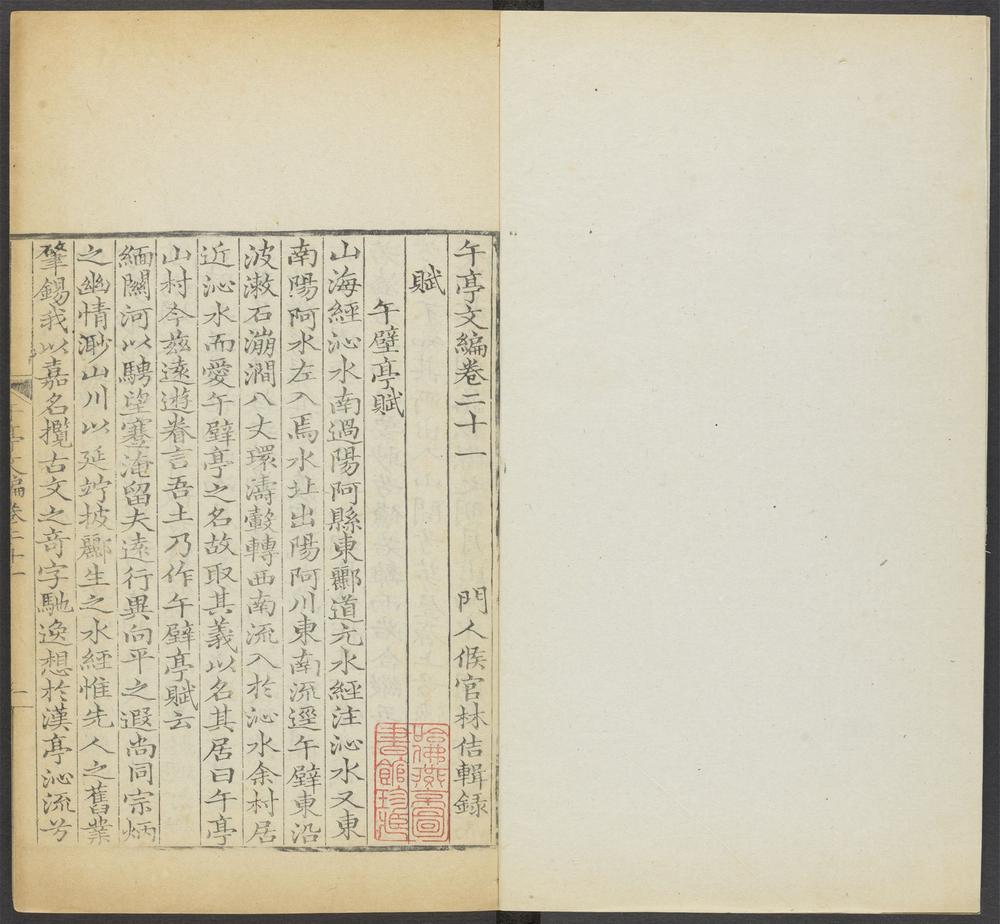 午亭文編卷二十一　　　門人候官林佶輯錄
賦
午壁亭賦
山海經沁水南過陽阿縣東酈道元水經注沁水又東
南陽阿水左入焉水北出陽阿川東南流逕午壁東沿
波漱石漰澗八丈環濤轂轉西南流入於沁水余村居
近沁水而愛午壁亭之名故取其義以名其居曰午亭
山村今茲遠遊眷言吾土乃作午壁亭賦云
緬關河以騁望蹇淹留夫遠行異向平之遐尚同宗炳
之幽情渺山川以延竚披酈生之水經惟先人之舊業
肇錫我以嘉名攬古文之奇字馳逸想於漢亭沁流兮
哈佛燕京圖
書館珍藏
午亭文編卷二十一
一